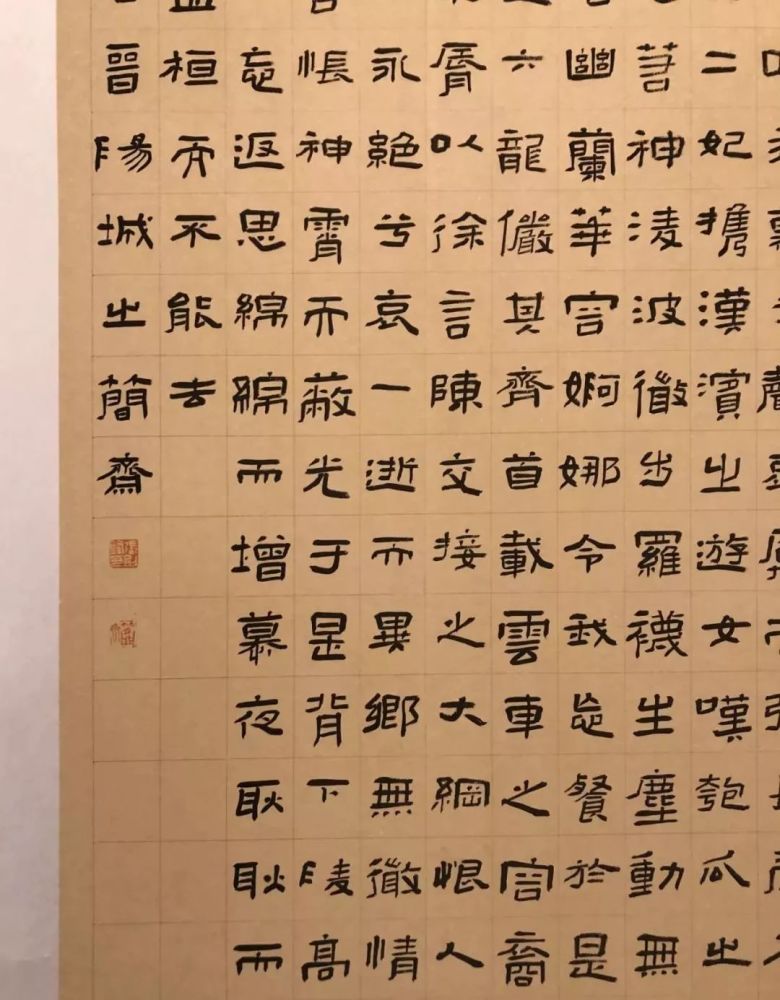 二妃攜漢濱之遊女嘆匏瓜之
若神淩波微步羅襪生塵動無
幽蘭華容婀娜令我忘餐於是
六龍儼其齊首載雲車之容裔
脣以徐言陳交接之大綱恨人
永絕兮哀一逝而異鄉無微情
悵神霄而蔽光于是背下陵高
忘返思綿綿而增慕夜耿耿而
桓而不能去
晉陽城之簡齋